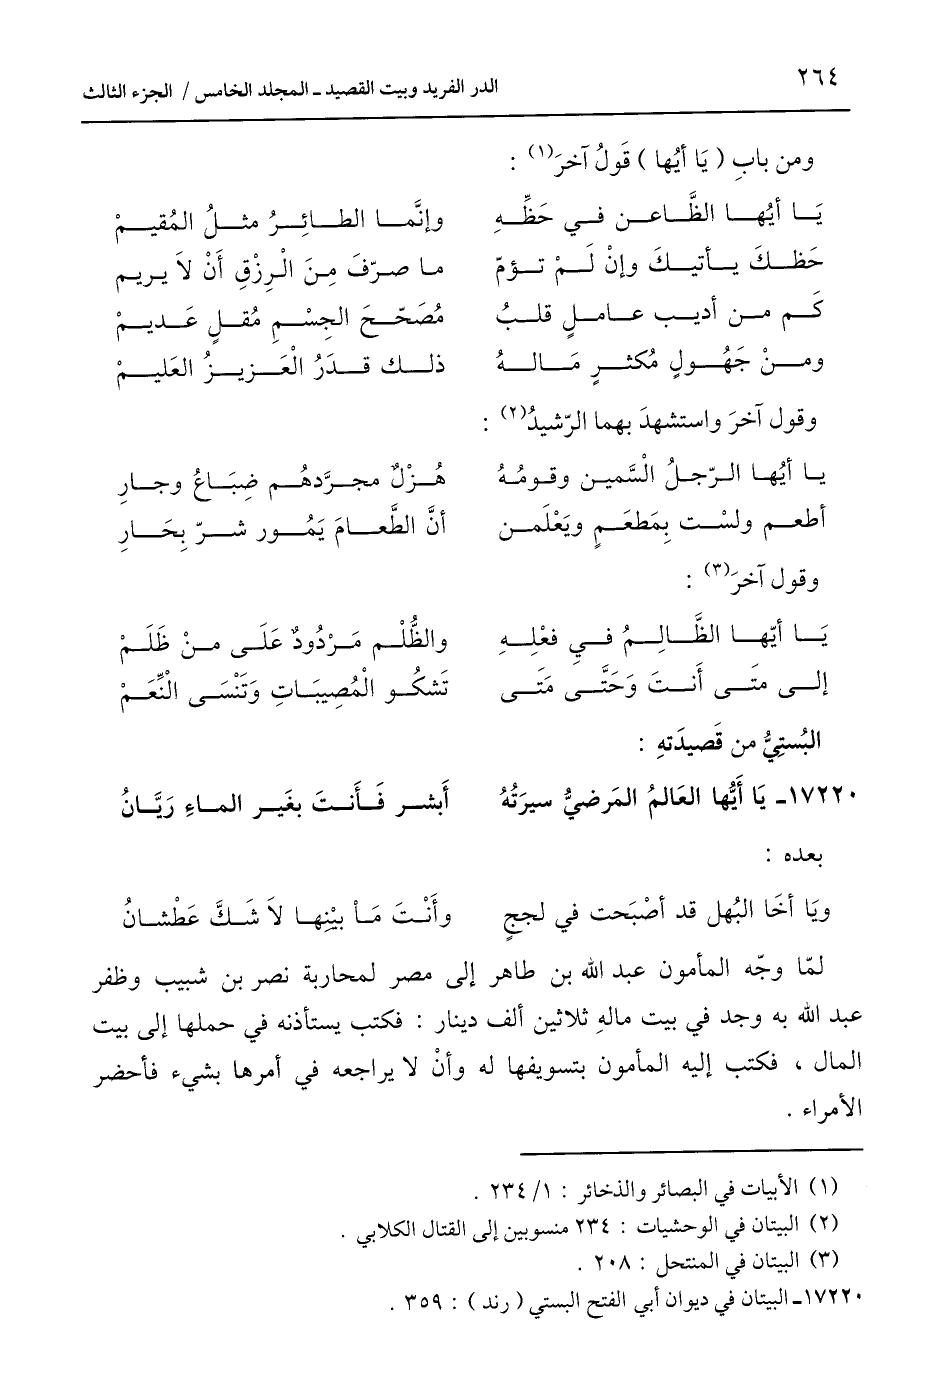 ٢٦٤ الدر الفريد وبيت القصيد ـ المجلد الخامس / الجزء الثالث
ومن بابِ ( يَا أيُها ) قَولُ آخرَ(١) :
يَا أيُها الظَّاعن في حَظِّهِ وإنَّما الطائِرُ مثلُ المُقيمْ
حَظكَ يأتيكَ وإنْ لَمْ تؤمّ ما صرّفَ مِنَ الْرِزْقِ أنْ لاَ يريم
كَم من أديب عاملٍ قلبُ مُصَحّحَ الجِسْمِ مُقلٍ عَديمْ
ومنْ جَهُولٍ مُكثرٍ مَالهُ ذلك قدَرُ الْعَزيزُ العَليمْ
وقول آخرَ واستشهدَ بهما الرّشيدُ(٢) :
يا أيُها الرّجلُ الْسَّمين وقومُهُ هُزْلٌ مجرَّدهُم ضِبَاعُ وجارِ
أطعم ولسْت بِمَطعَمٍ ويَعْلَمن أنَّ الطَّعامَ يَمُور شرّ بِحَارِ
وقول آخرَ(٣) :
يَا أيّها الظَّالِمُ في فعْلِهِ والظُّلْم مَرْدُودٌ عَلَى منْ ظَلَمْ
إلى متَى أنتَ وَحَتَّى مَتَى تَشكُو الْمُصِيبَاتِ وَتَنْسَى النِّعَمْ
البُستِيُّ من قَصيدَتهِ :
١٧٢٢٠ـ يَا أَيُّها العَالمُ المَرضيُّ سيرَتُهُ أَبشر فَأَنتَ بغَير الماءِ رَيَّانُ
بعده :
ويَا أخَا البُهل قد أصْبَحت في لججٍ وأَنْتَ مَاْ بيْنِها لاَ شَكَّ عَطْشانُ
لمّا وجّه المأمون عبد الله بن طاهر إلى مصر لمحاربة نصر بن شبيب وظفر
عبد الله به وجد في بيت مالهِ ثلاثين ألف دينار : فكتب يستأذنه في حملها إلى بيت
المال ، فكتب إليه المأمون بتسويفها له وأنْ لا يراجعه في أمرها بشيء فأحضر
الأمراء .
(١) الأبيات في البصائر والذخائر : ١/ ٢٣٤ .
(٢) البيتان في الوحشيات : ٢٣٤ منسوبين إلى القتال الكلابي .
(٣) البيتان في المنتحل : ٢٠٨ .
١٧٢٢٠ـ البيتان في ديوان أبي الفتح البستي ( رند ) : ٣٥٩ .